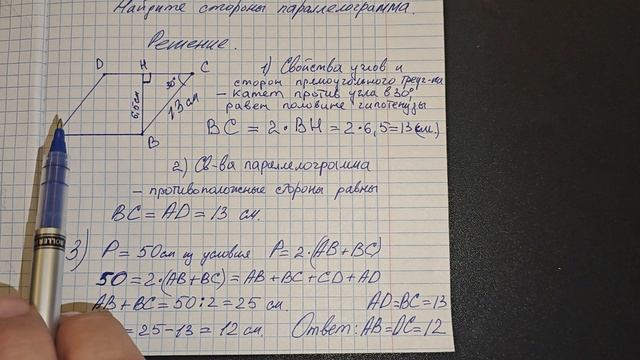 Найдите стороны параллелограмма.
Решение.
D H C
30°
6,5 см
13 см
B
1) Свойства углов и
сторон прямоугольного треуг-ка
– катет против угла в 30°
равен половине гипотенузы
BC = 2 · BH = 2 · 6,5 = 13 (см.)
2) Св-ва параллелограмма
– противоположные стороны равны
BC = AD = 13 см.
3) P = 50 см из условия P = 2 · (AB + BC)
50 = 2 · (AB + BC) = AB + BC + CD + AD
AB + BC = 50 : 2 = 25 см. AD = BC = 13
= 25 – 13 = 12 см. Ответ: AB = DC = 12
ROLLER